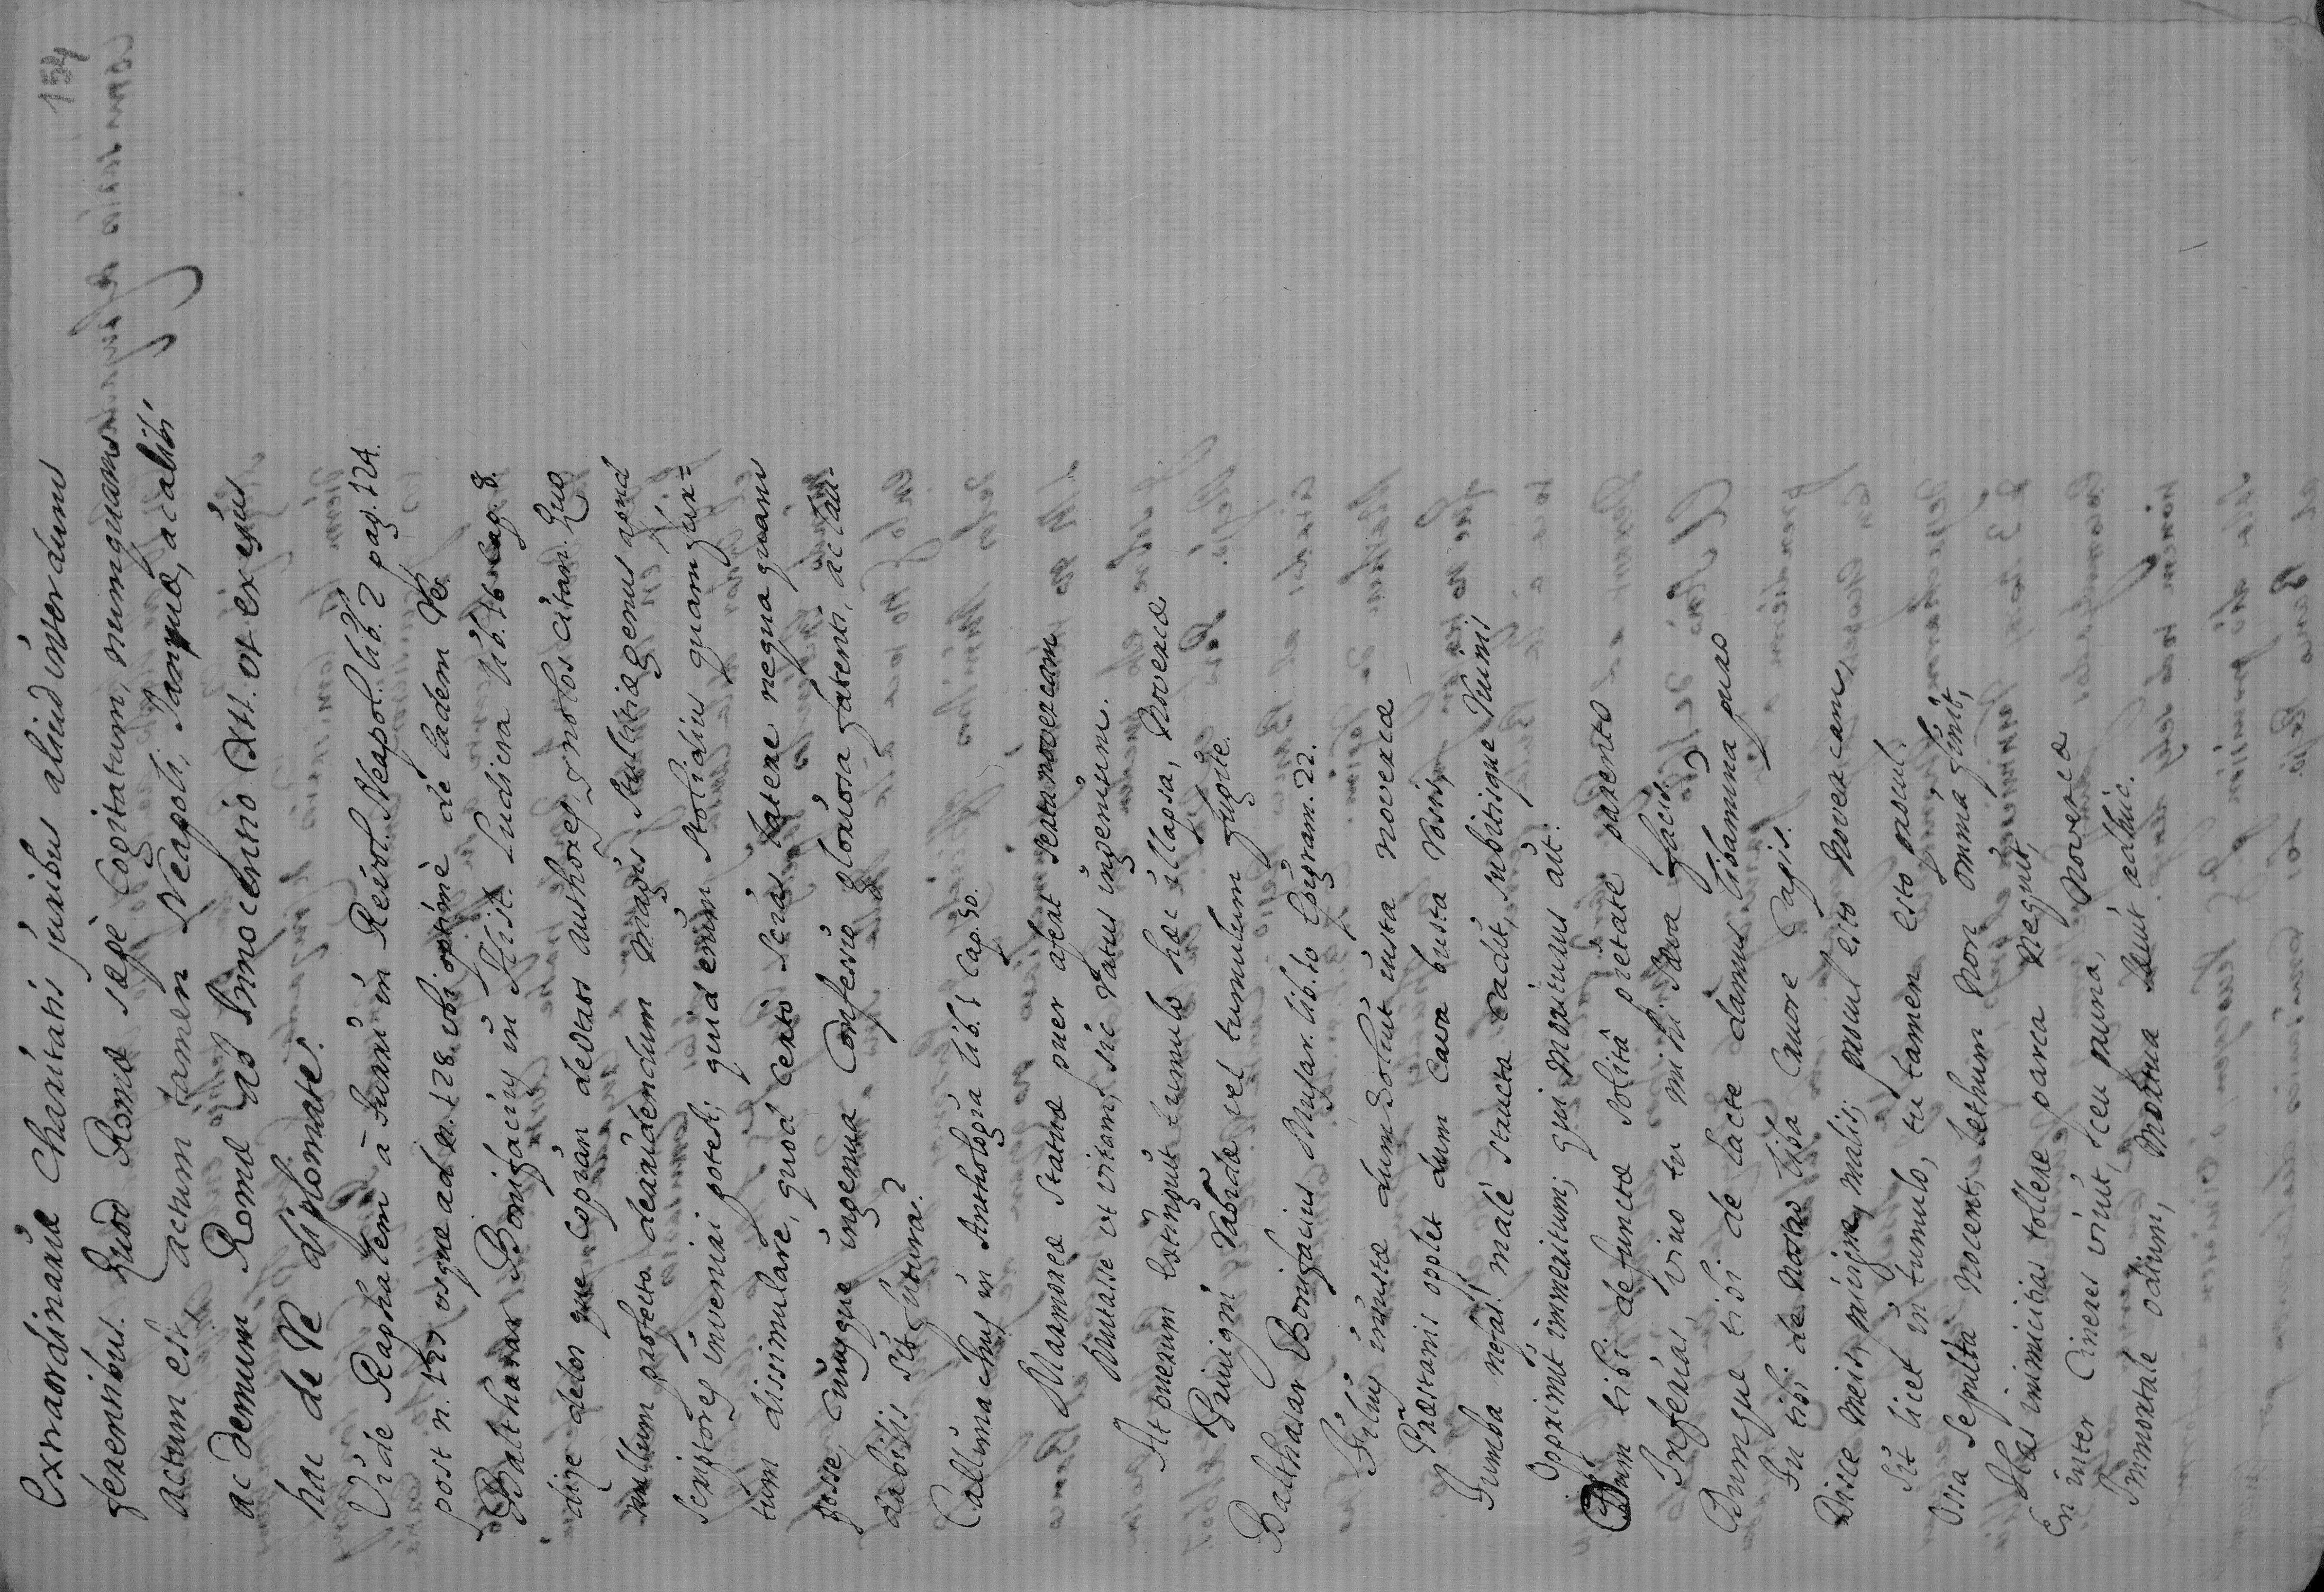 154
Extraordinariæ Charitatis juribus aliud interdum
ferentibus. Quod Romæ sæpè Cogitatum, numquam
actum est, actum tamen Neapoli, Ianuæ, ac alibi
ac demum Romæ ab Innocentio XII. ot ex ejus
hac de Re diplomate.
Vide Raphalem à Turri in Reivol. Neapol. lib. 2 pag. 124.
post n. 127 usque ad n. 128. ubi optimè de eadem Re.
Balthasar Bonifacius in Hist. Ludicra lib. 16 cap. 8.
dize delos que Copian de otros authores, y no los citan. Quo
nullum profecto dearridendum magis stultitiæ genus apud
Scriptores inveniri potest; quid enim stolidius quam fur=
tum dissimulare, quod certò scias latere nequaquam
posse, cuiusque ingenua Confessio gloriosa fatenti, ac lau-
dabilis sit futura?
Callimachus in Anthologia lib. 1 Cap. 90.
Marmoreæ Statuæ puer aferat serta novercam
Mutasse et vitam, sic ratus ingenium.
At puerum extinguit tumulo hæc illapsa, Novercæ
Privigni vobis vel tumulum fugite.
Balthasar Bonifacius Musar. lib. 10 Epigram. 22.
Filius iniustæ dum solvit iusta novercæ
Præstanis opplet dum cava busta rosis,
Tumba nefas! malè structa cadit, subitisque ruinis
Opprimit immeritum; qui moriturus ait:
Dum tibi defunctæ solitâ pietate parento
Inferias, vivo tu mihi sæva facis?
Dumque tibi de lacte damus libamina puro
Tu tibi de nostro liba cruore capis.
Disce meis, privigne, malis; procul esto novercam,
Sit licet in tumulo, tu tamen esto procul.
Ossa sepulta nocent; lethum non omnia finit,
Has inimicitias tollere parca nequit,
En inter Cineres vivit, ceu pruna, Noverca
Immortale odium, mortua sævit adhuc.